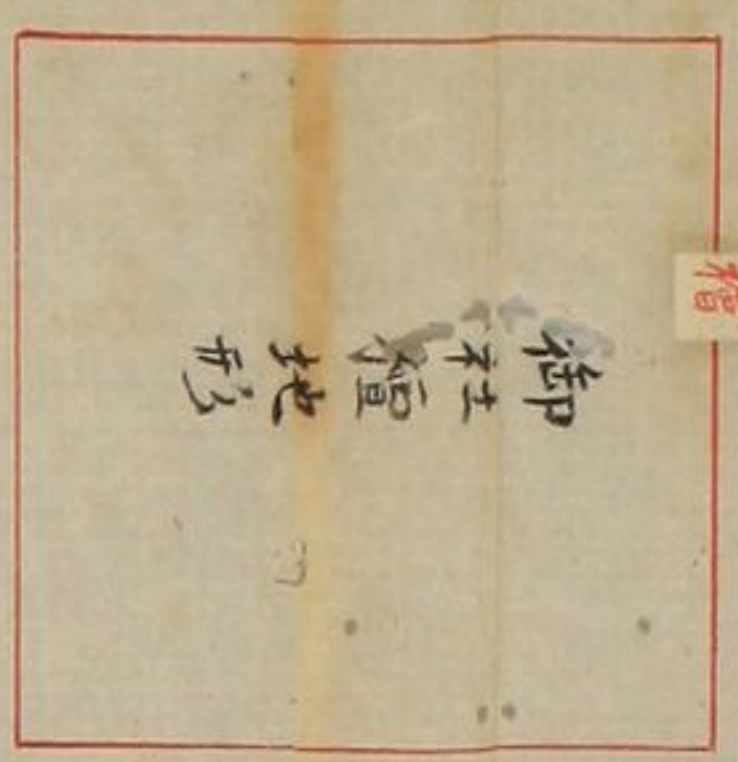 御社壇地形